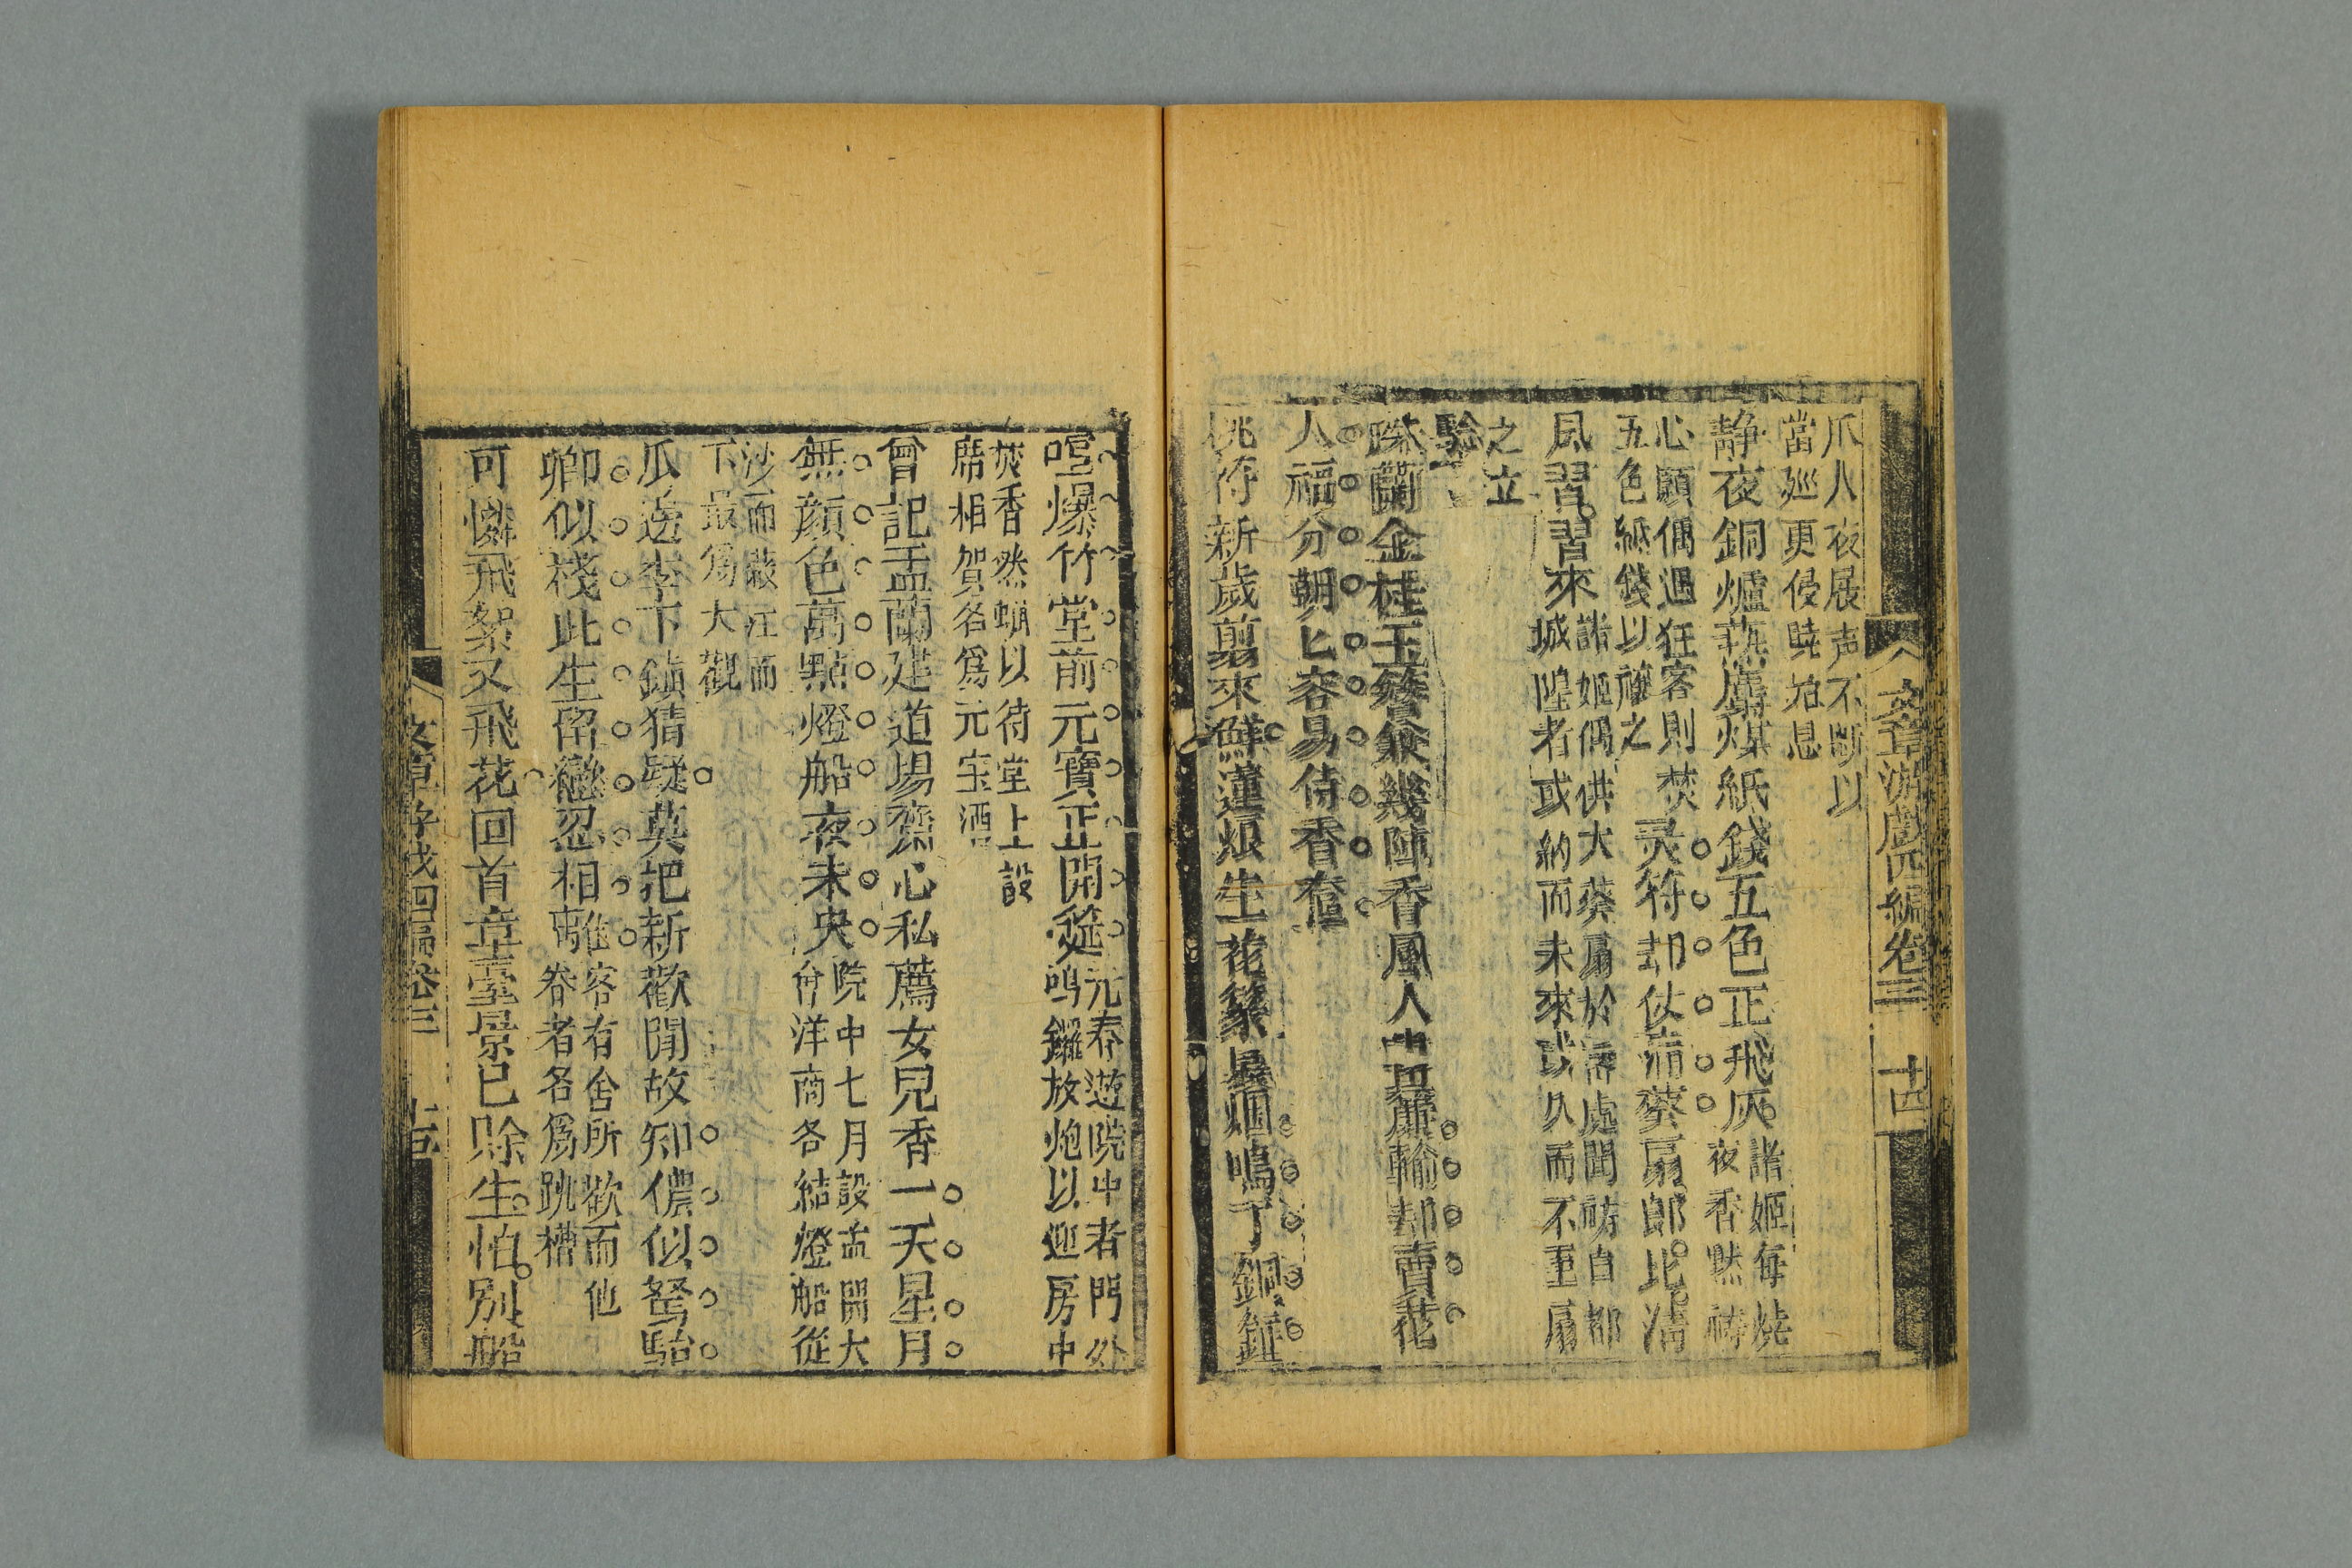 文章游戲四編卷三 十四
爪人夜展声不斷以
當廵更侵曉始息
靜夜銅爐蓺麝煤紙錢五色正飛灰
諸姬每燒
夜香黙禱
心願偶遇狂客則焚
五色紙錢以禳之
灵符却仗蒲葵扇郎比淸
風習習來
諸姬偶供大葵扇於 處聞禱自都
城隍者或納而未來或久而不至扇
之立
驗
珠蘭金桂玉簪僉幾陣香風人 簾輸却賣花
人福分朝匕容易侍香奩
桃符新歲剪來鮮蓮炬生花篆 烟鳴了銅鉦
喧爆竹堂前元寶正開筵
元春遊院中者門外
鳴鑼放炮以迎房中
焚香然蠟以待堂上設
席相賀名爲元宝酒
曾記盂蘭建道場齋心私薦女兒香一天星月
無顔色萬點燈船夜未央
院中七月設盂蘭大
會洋商各結燈船從
沙面蔽江而
下最爲大觀
瓜邊李下鎮猜疑莫把新歡閒故知儂似駑駘
卿似棧此生留戀忍相離
客有舍所歡而他
眷者名爲跳槽
可憐飛絮又飛花回首章臺景已賖生怕別船
文章游戲四編卷三 十五